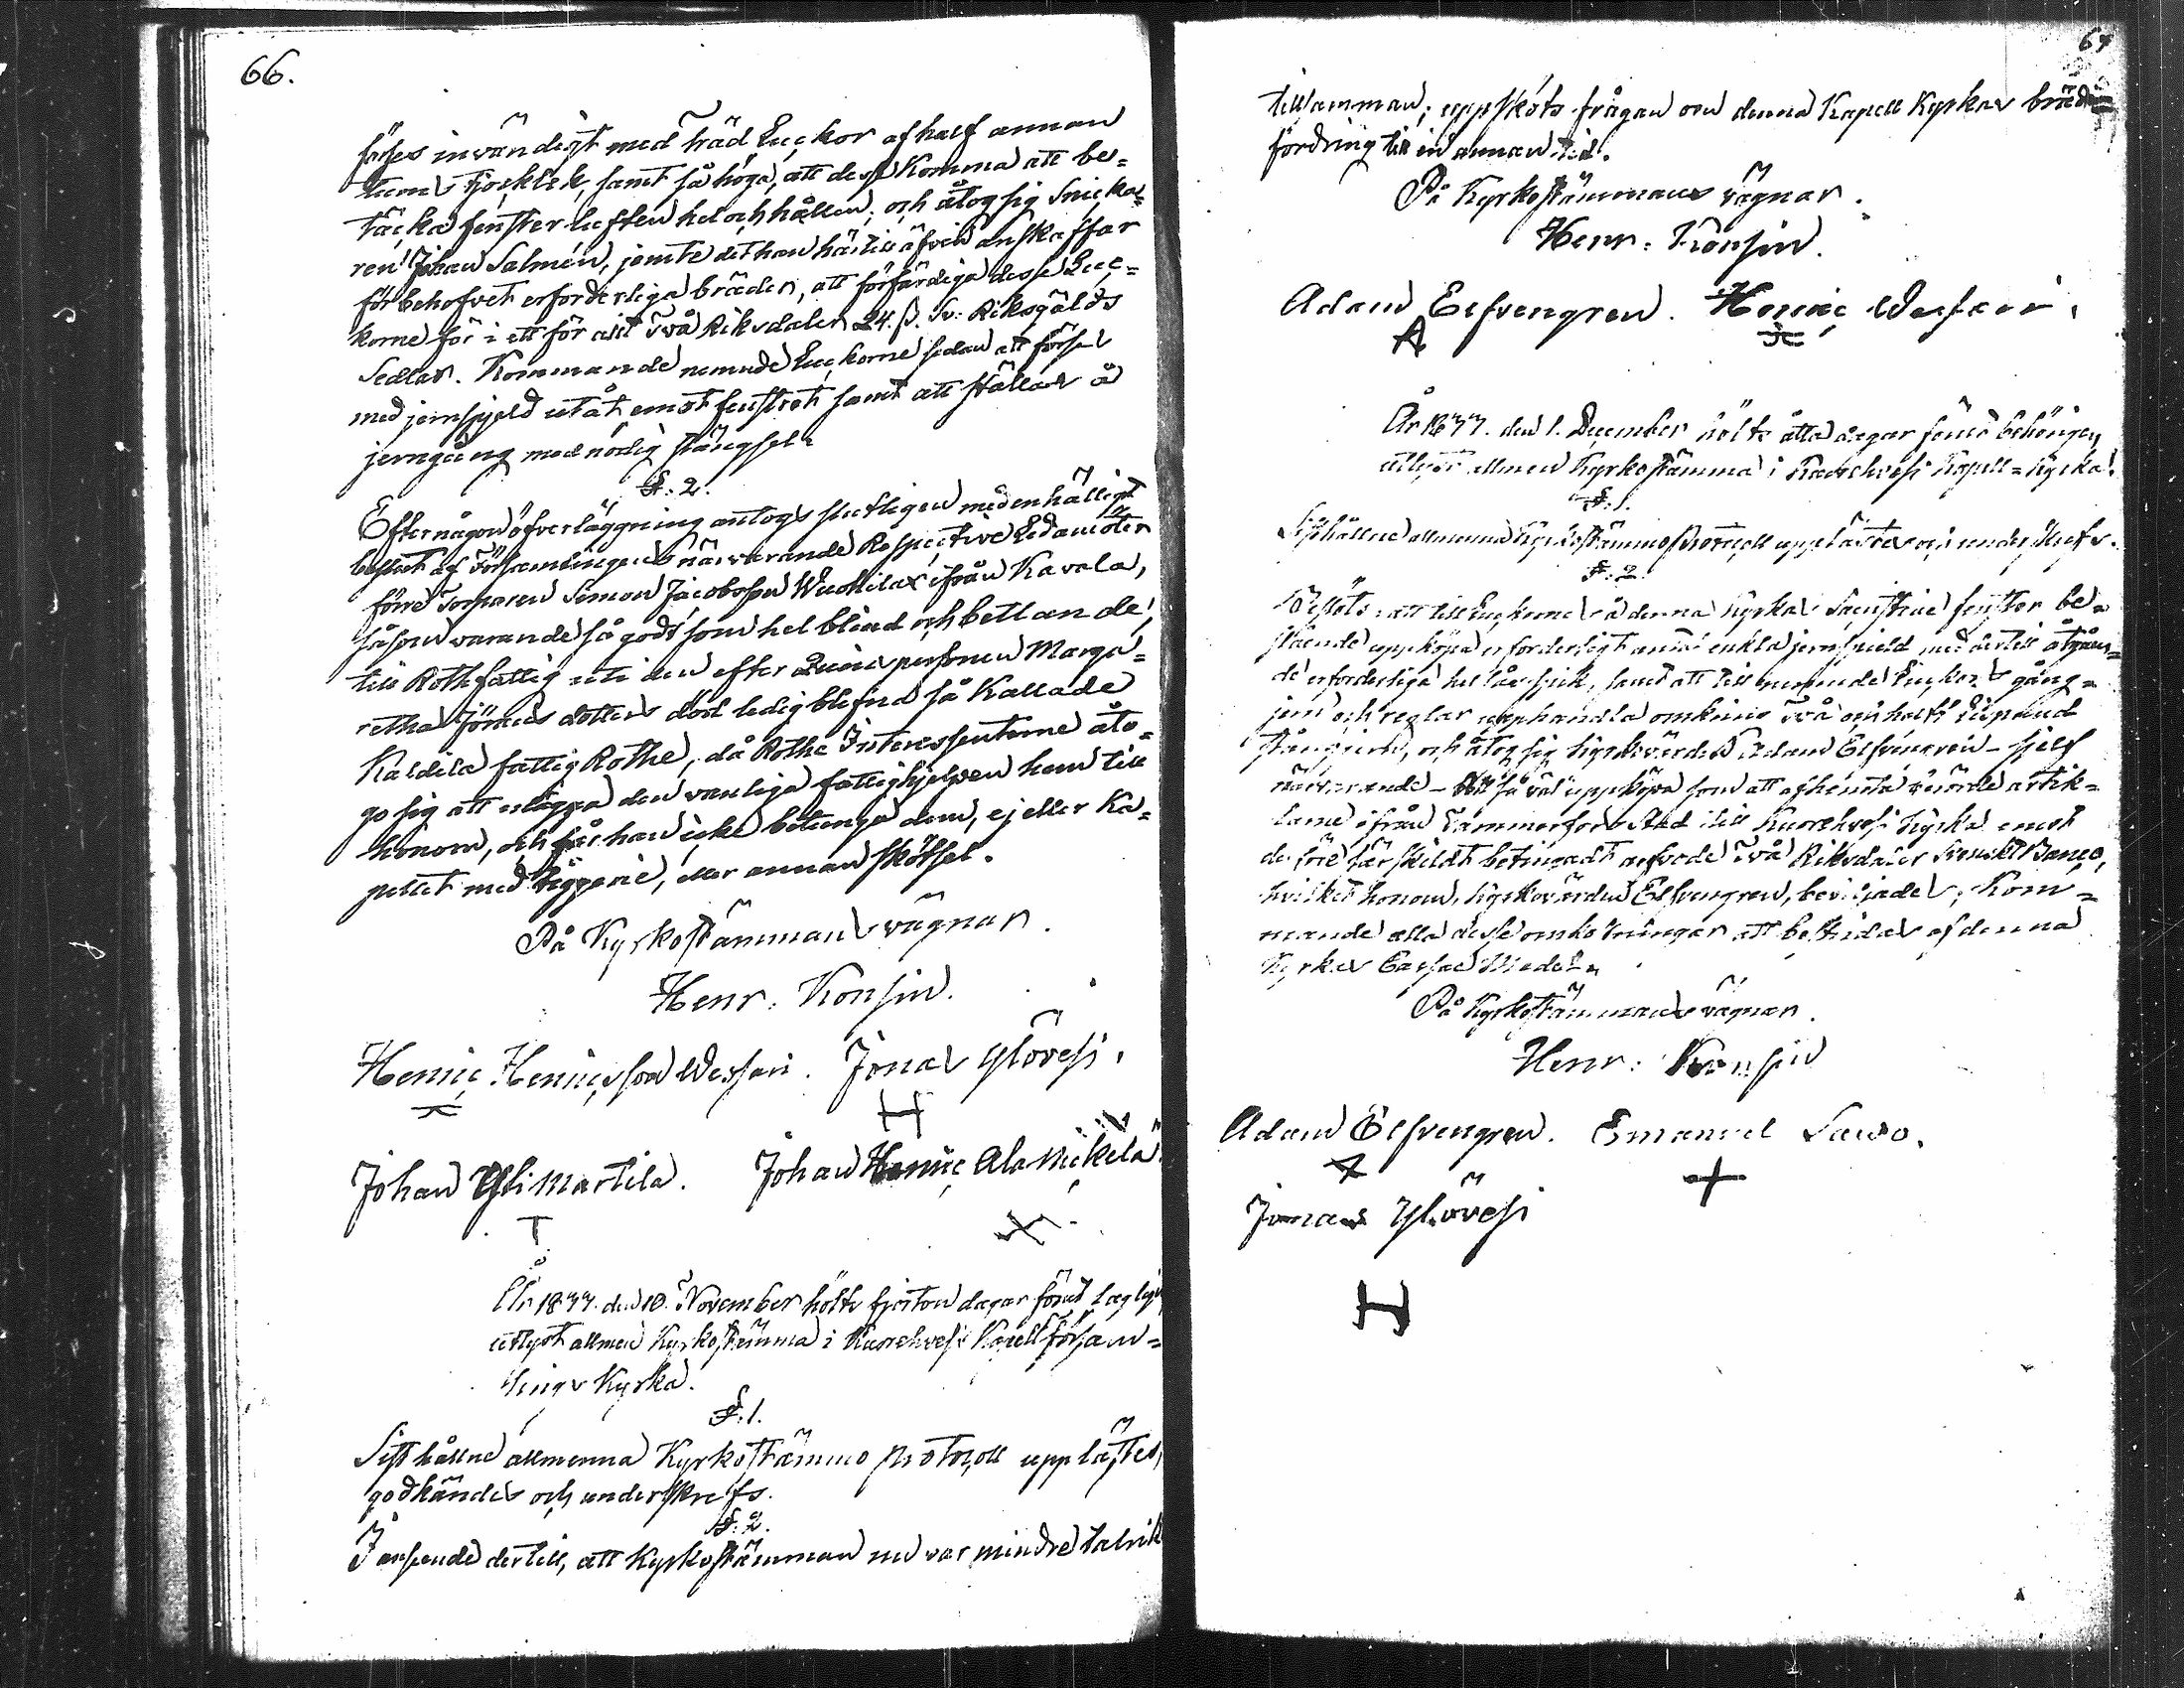 66.
förses invändigt med träd Luckor af half annan
tums tjocklek, samt så höga, att desse Komma att be=
täcka fenster luften hel och hållen; och åtog sig Snicka=
ren Johan Salmén, jemte det han härtill äfven anskaffar
för behofvet erforderliga bräder, att förfärdiga desse Luc=
korne för i ett för allt två Riksdaler 24. ß. Sv: Riksgälds
Sedlar. Kommande nemnde Luckorne sedan att förses
med jernspjeld utåt emot fenstret samt att ställas å
jerngång med nödig stängsel.
§. 2.
Efter någon öfverläggning antogs slutligen med enhälligt
beslut af Församlingens närvarande Respective Ledamöter
förre Torparen Simon Jacobsson Wuohilax ifrån Kavala,
såsom varande så godt som hel blind och bettlande,
till Rothfattig uti den efter Quinspersonen Marga=
retha Jöransdotters död ledig blefna så Kallade
Kaldila fattig Rothe, då Rothe Interessenterne åto=
go sig att utlägga den vanliga fattighjelpen hem till
honom, och får han icke betunga dem, ej eller Ka=
pellet med tiggerie, eller annan skötsel.
På Kyrkostämmans vägnar.
Henr: Konsin.
Henric Henricsson Wessari. Jonas Ylövesi.
Johan Yli Martila. Johan Henric Ala Mickelä
År 1833. den 10. November hölts fjorton dagar förut lagligen
utlyst allmen Kyrkostämma i Kuorehvesi Kapellförsam=
lings Kyrka.
§. 1.
Sisthållne allmenna Kyrkostämmo protocoll upplästes,
godkändes och underskrefs.
§. 2.
I anseende dertill, att Kyrkostämman nu var mindre talrik
67
tillsamman; uppsköts frågan om denna Kapell Kyrkas
fordring till en annan tid.
På Kyrkostämmans vägnar.
Henr: Konsin.
Adam Elfvengren. Henric Wessari.
År 1833. den 1. December hölts åtta dagar förut behörigen
utlyst allmen Kyrkostämma i Kuorehvesi Kapell=Kyrka.
§. 1.
Sisthållne allmenna Kyrkostämmo Protocoll upplästes och underskrefs.
§. 2.
Beslöts: att till Luckorne å denna Kyrkas Sacristie fenster be=
stående uppköpa erforderligt antal enkla jernspield med dertill åtgåen=
de erforderliga spik, samt att till nemnde Luckors gång=
jern och reglar upphandla omkring två och halft Lispund
stångjern, och åtog sig Kyrkovärden Adam Elfvengren - sjelf
närvarande - att så väl uppköpa som att afhemta rörde artik=
larne ifrån Tammerfors Stad till Kuorehvesi Kyrka emot
derföre särskildt betingadt arfvode två Riksdaler Svenskt Banco,
hvilket honom, Kyrkovärden Elfvengren, beviljades; Kom=
mande alla desse omkostningar att bestridas af denna
Kyrkas Cassae Medel.
På Kyrkostämmans vägnar.
Henr: Konsin
Adam Elfvengren. Emanuel Sawo.
Jonas Ylövesi